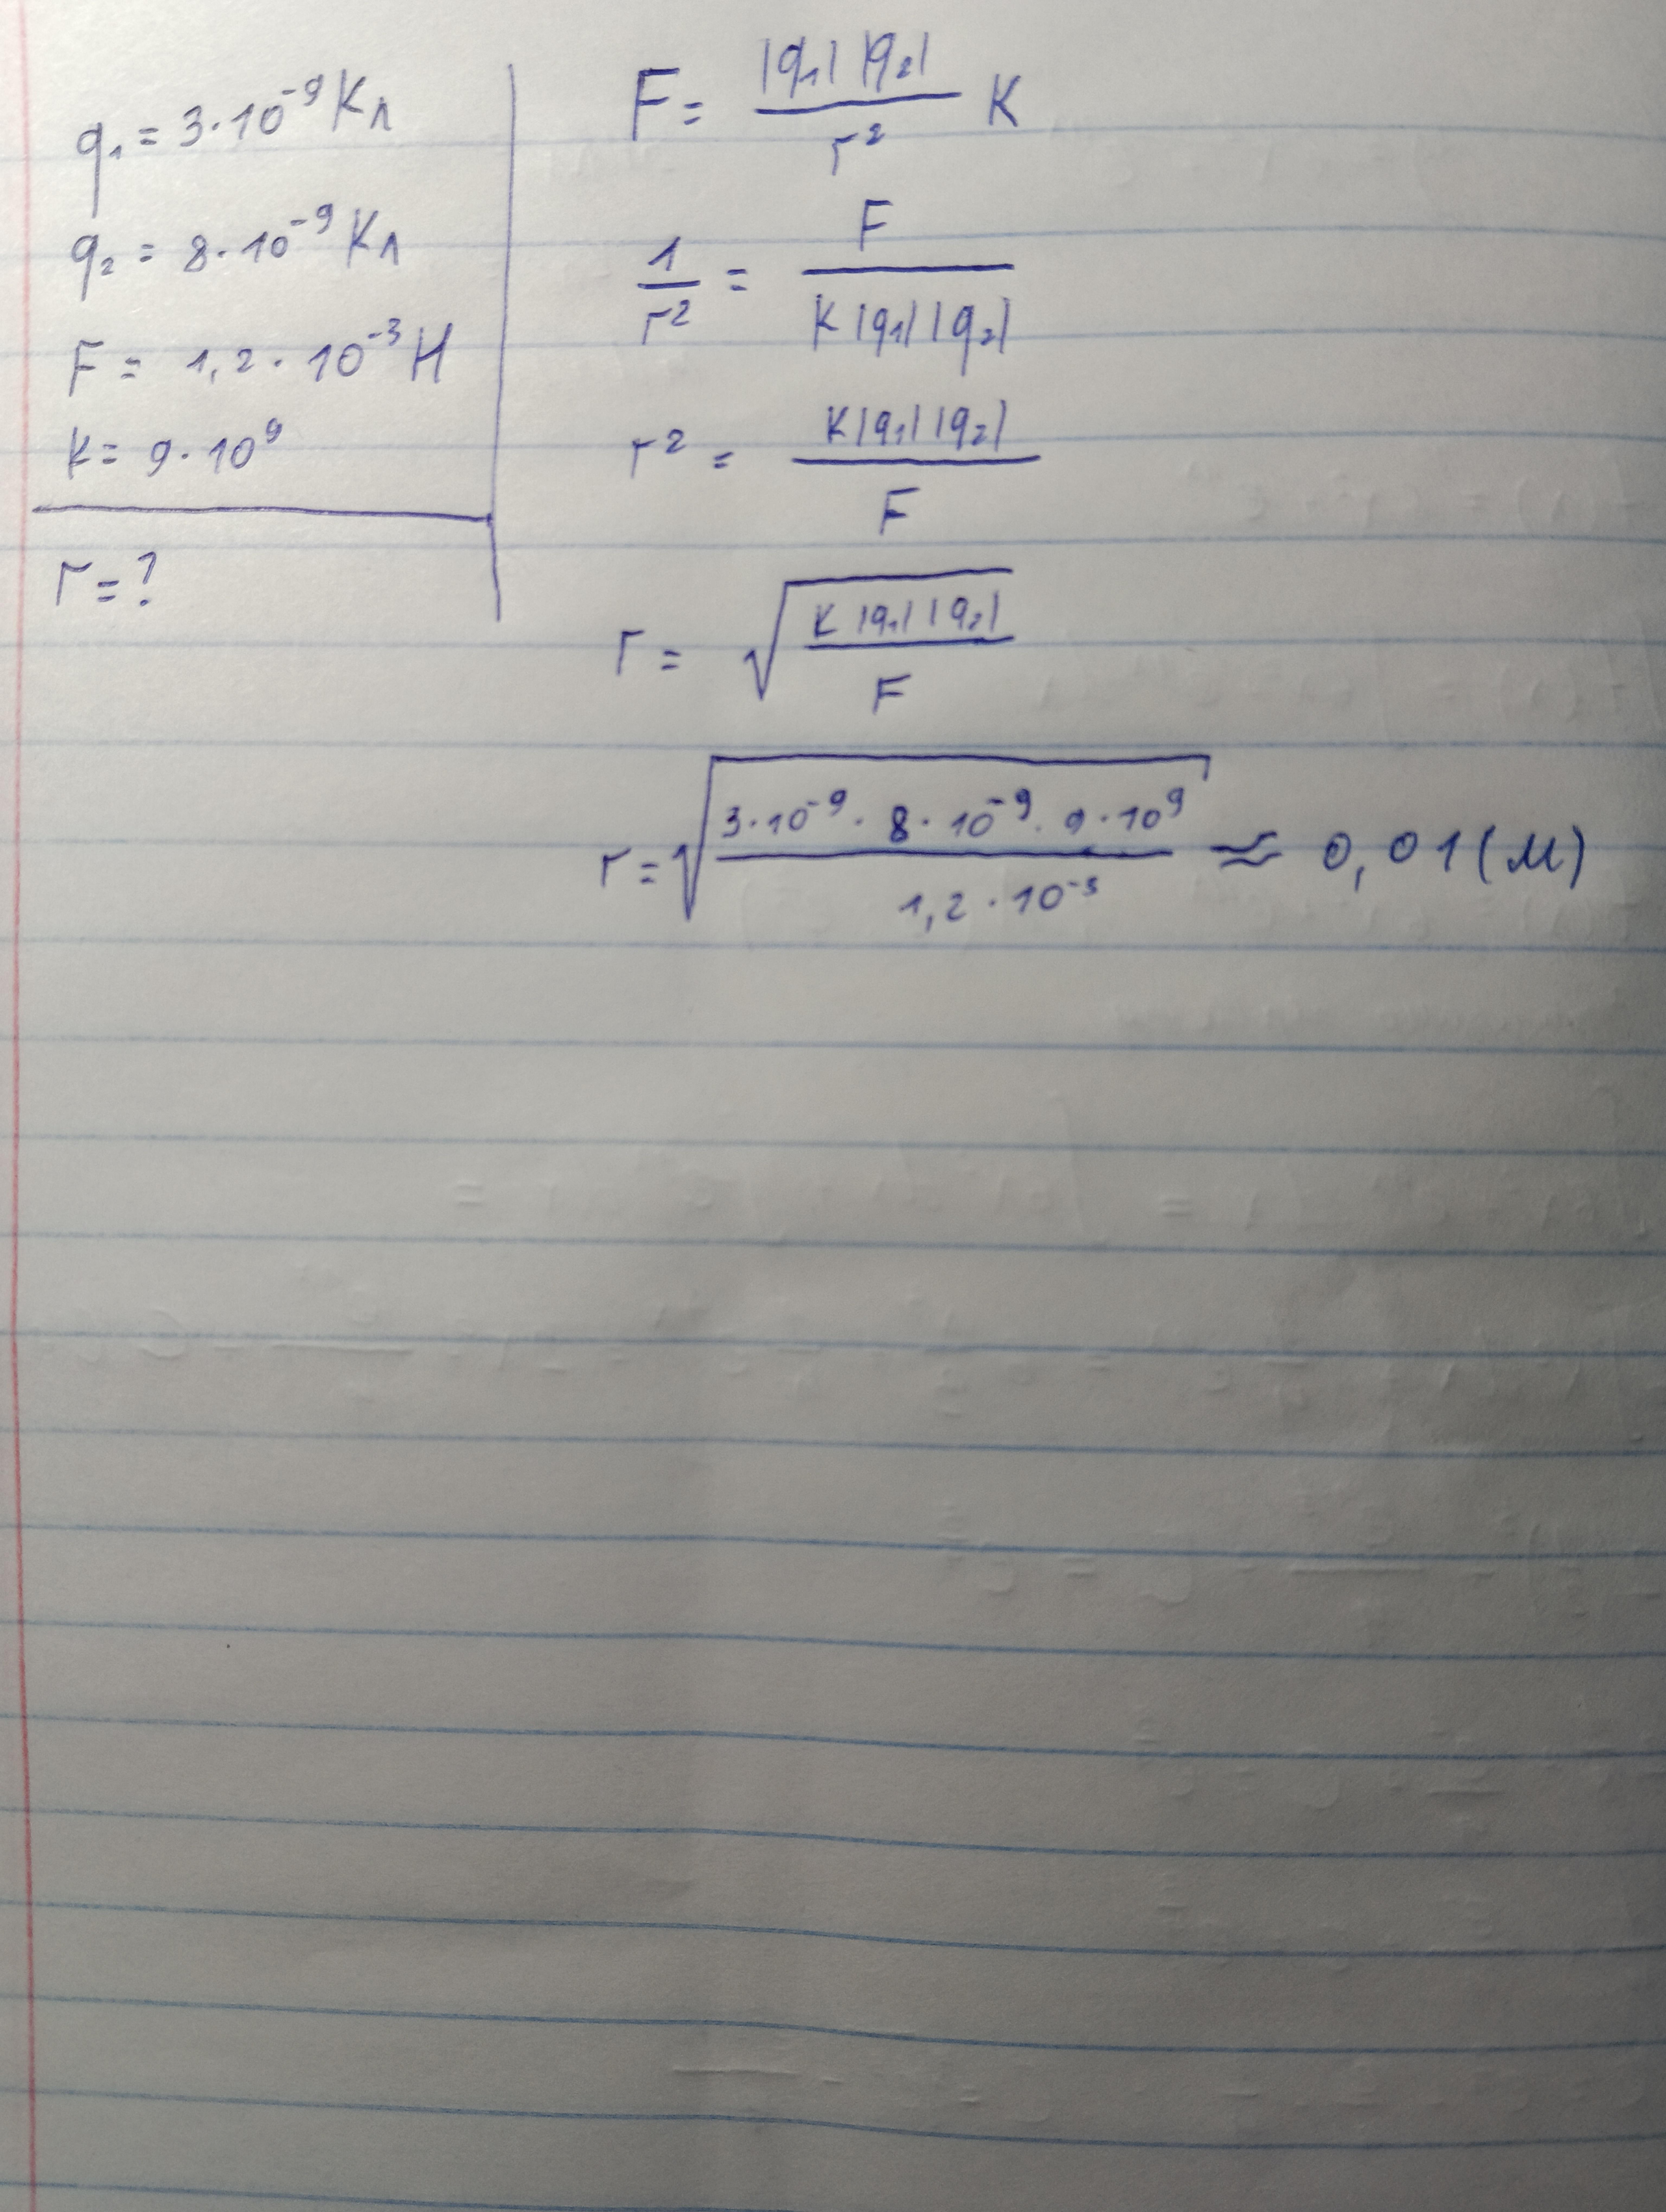 q₁ = 3·10⁻⁹ Кл
q₂ = 8·10⁻⁹ Кл
F = 1,2·10⁻³ Н
k = 9·10⁹
r = ?
F = |q₁| |q₂| / r² K
1 / r² = F / K |q₁| |q₂|
r² = K |q₁| |q₂| / F
r = √(K |q₁| |q₂| / F)
r = √(3·10⁻⁹ · 8·10⁻⁹ · 9·10⁹ / 1,2·10⁻³) ≈ 0,01 (м)